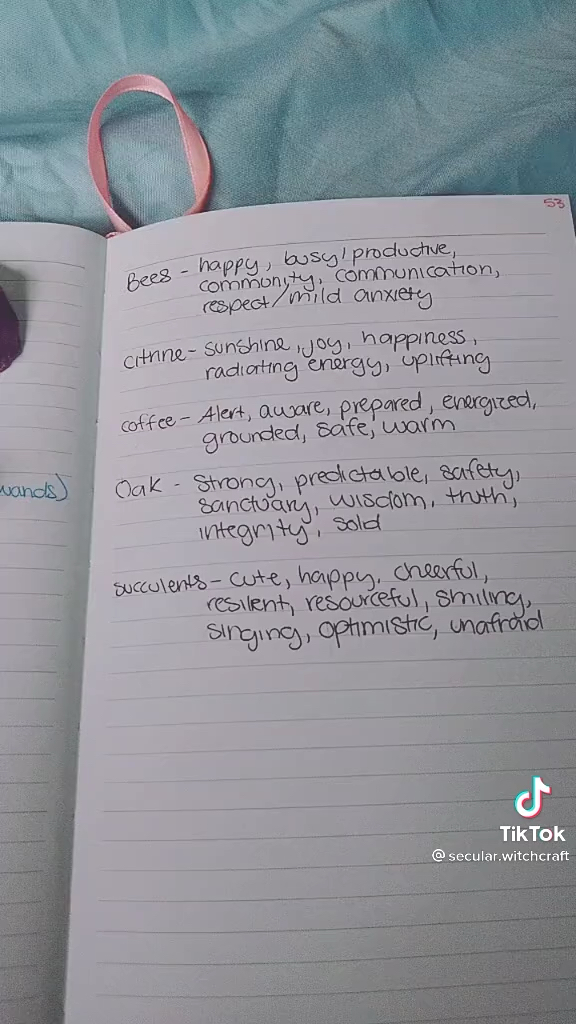 53
Bees - happy, busy/productive,
community, communication,
respect/mild anxiety
citrine - sunshine, joy, happiness,
radiating energy, uplifting
coffee - Alert, aware, prepared, energized,
grounded, safe, warm
wands)
Oak - Strong, predictable, safety,
sanctuary, wisdom, truth,
integrity, solid
succulents - cute, happy, cheerful,
resilient, resourceful, smiling,
singing, optimistic, unafraid
TikTok
@secular.witchcraft